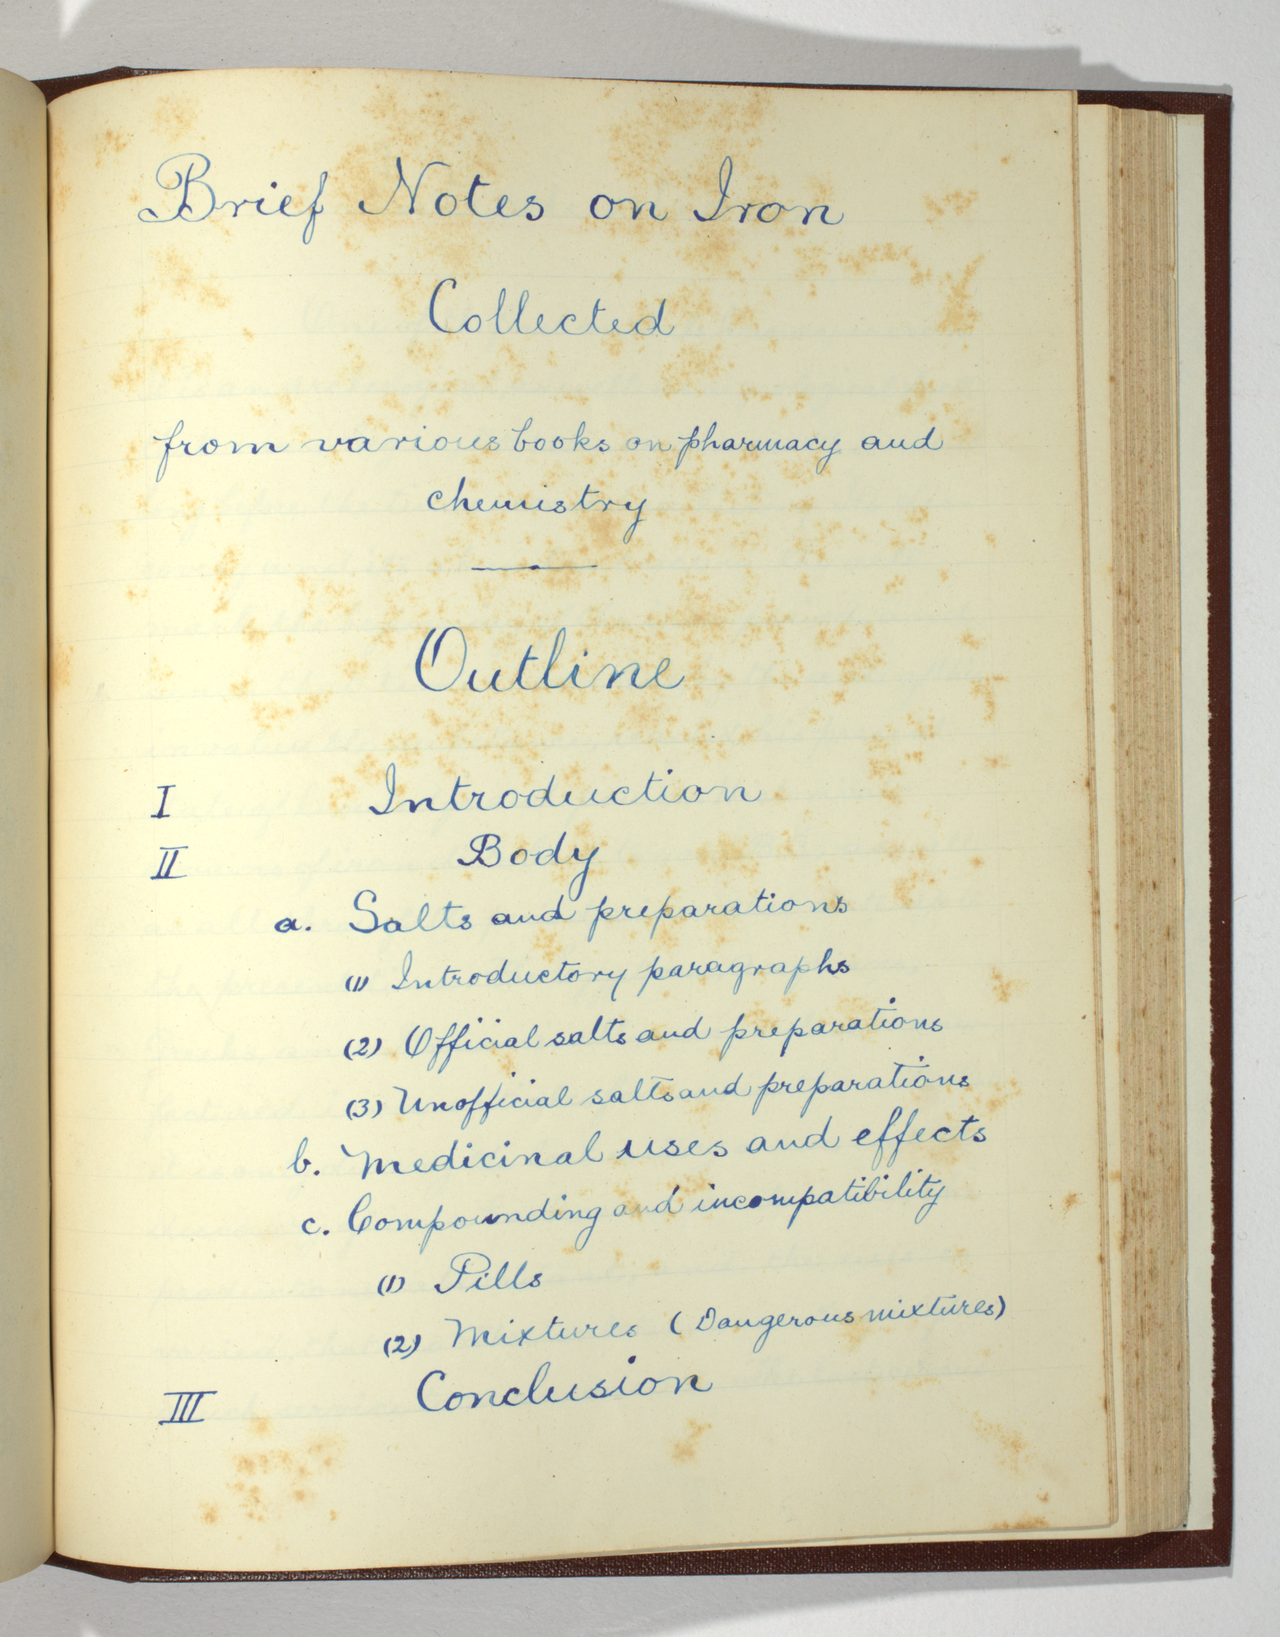 Brief Notes on Iron
Collected
from various books on pharmacy and
chemistry
Outline
I Introduction
II Body
a. Salts and preparations
(1) Introductory paragraphs
(2) Official salts and preparations
(3) Unofficial salts and preparations
b. Medicinal uses and effects
c. Compounding and incompatibility
(1) Pills
(2) Mixtures (Dangerous mixtures)
III Conclusion